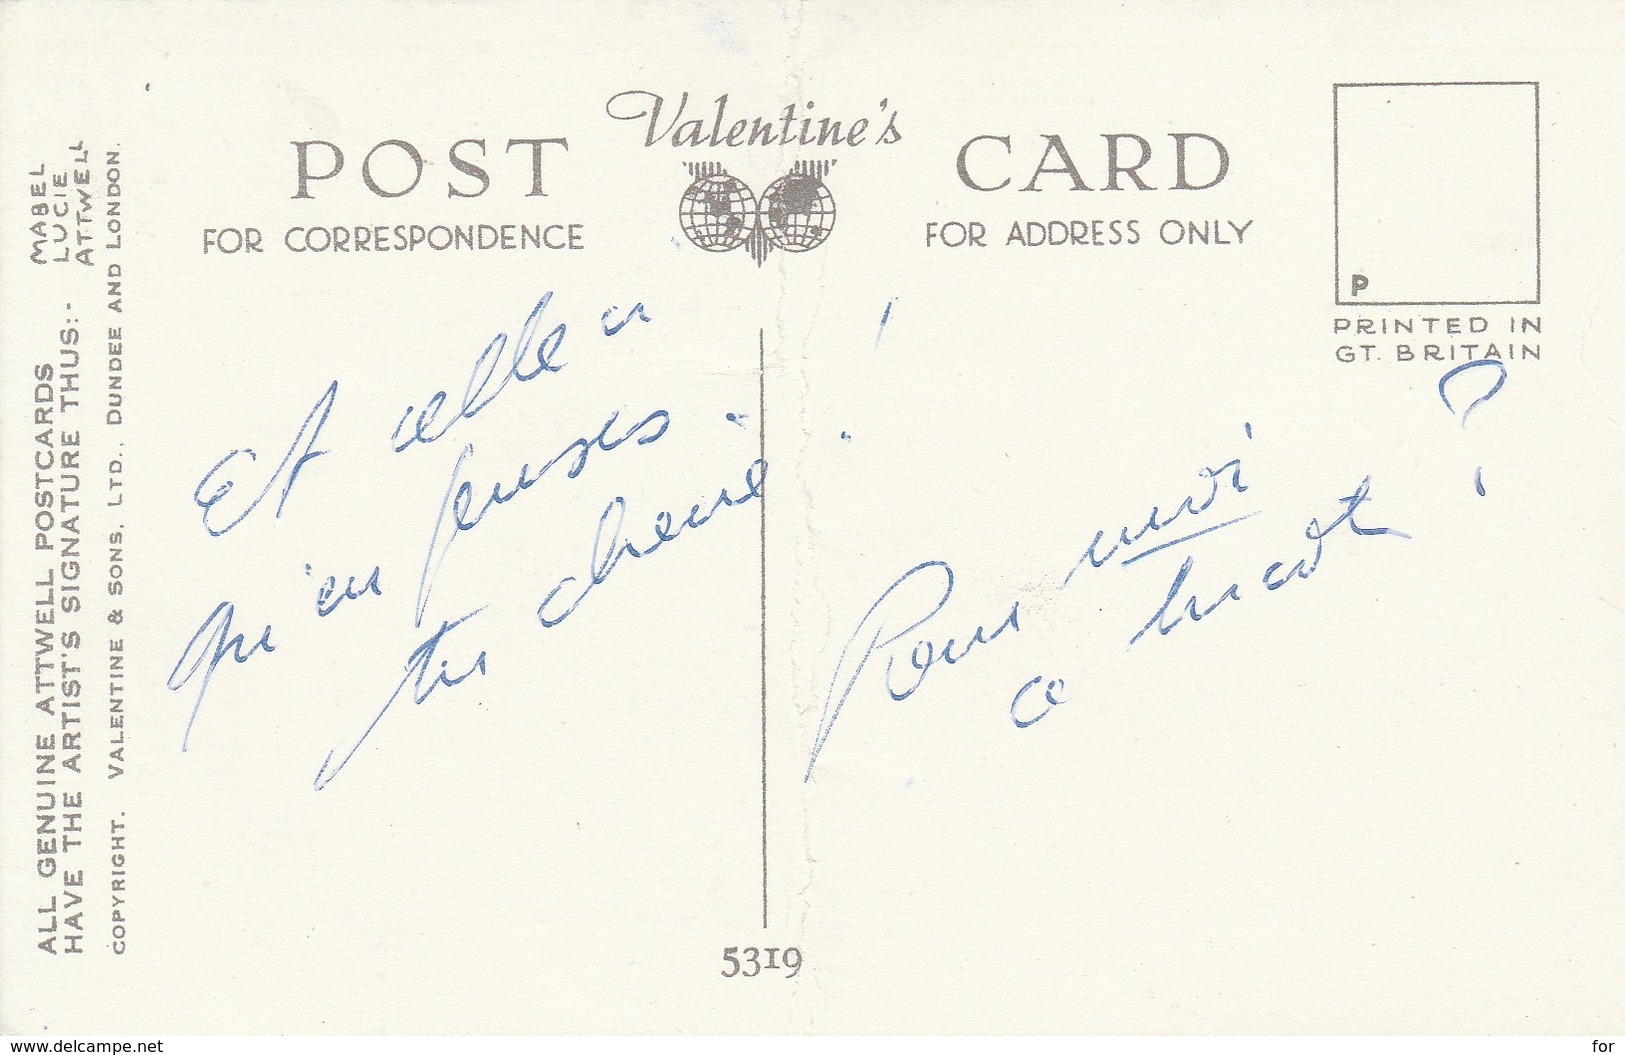 POST
Valentine's
CARD
FOR CORRESPONDENCE
FOR ADDRESS ONLY
P
PRINTED IN
GT. BRITAIN
ALL GENUINE ATTWELL POSTCARDS
HAVE THE ARTIST'S SIGNATURE THUS:-
MABEL
LUCIE
ATTWELL
COPYRIGHT. VALENTINE & SONS, LTD., DUNDEE AND LONDON.
Et celle ci !
qu'en penses.
tu chérie
Pour moi
ce tricot ?
5319
www.delcampe.net
for